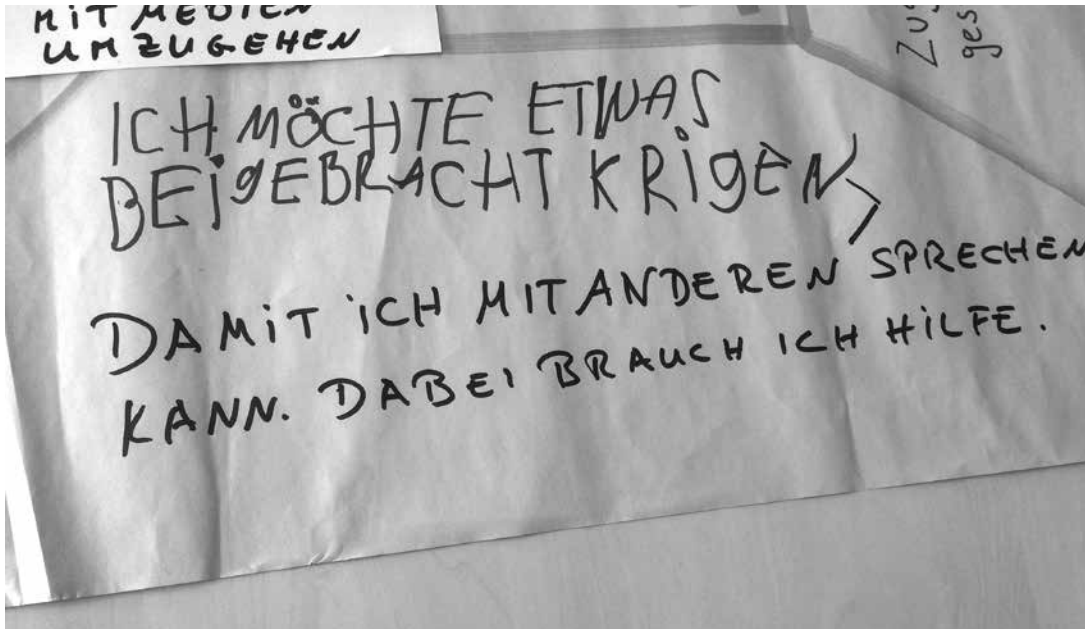 MiT MEDIEN
UMZUGEHEN
ICH MÖCHTE ETWAS
BEigEBRACHT KRigEN,
DAMiT iCH MIT ANDEREN SPRECHEN
KANN. DABEI BRAUCH ICH HiLFE.